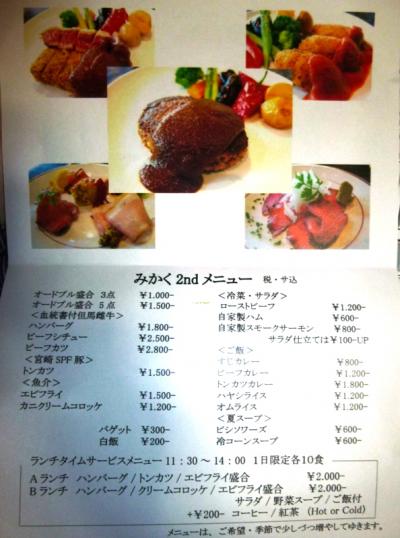 みかく 2nd メニュー 税・サ込
オードブル盛合 3点 ¥1.000-
オードブル盛合 5点 ¥1.500-
<血統書付但馬雌牛>
ハンバーグ ¥1.800-
ビーフシチュー ¥2.500-
ビーフカツ ¥2.800-
<宮崎SPF豚>
トンカツ ¥1.500-
<魚介>
エビフライ ¥1.500-
カニクリームコロッケ ¥1.200-
バゲット ¥300-
白飯 ¥200-
<冷菜・サラダ>
ローストビーフ ¥1.200-
自家製ハム ¥600-
自家製スモークサーモン ¥800-
サラダ仕立ては¥100-UP
<ご飯>
すじカレー ¥800-
ビーフカレー ¥1.200-
トンカツカレー ¥1.800-
ハヤシライス ¥1.200-
オムライス ¥1.200-
<夏スープ>
ビシソワーズ ¥600-
冷コーンスープ ¥600-
ランチタイムサービスメニュー 11:30~14:00 1日限定各10食
Aランチ ハンバーグ / トンカツ / エビフライ盛合 ¥2.000-
Bランチ ハンバーグ / クリームコロッケ / エビフライ盛合 ¥2.000-
サラダ / 野菜スープ / ご飯付
+¥200- コーヒー / 紅茶 (Hot or Cold)
メニューは、ご希望・季節で少しづつ増やしてゆきます。